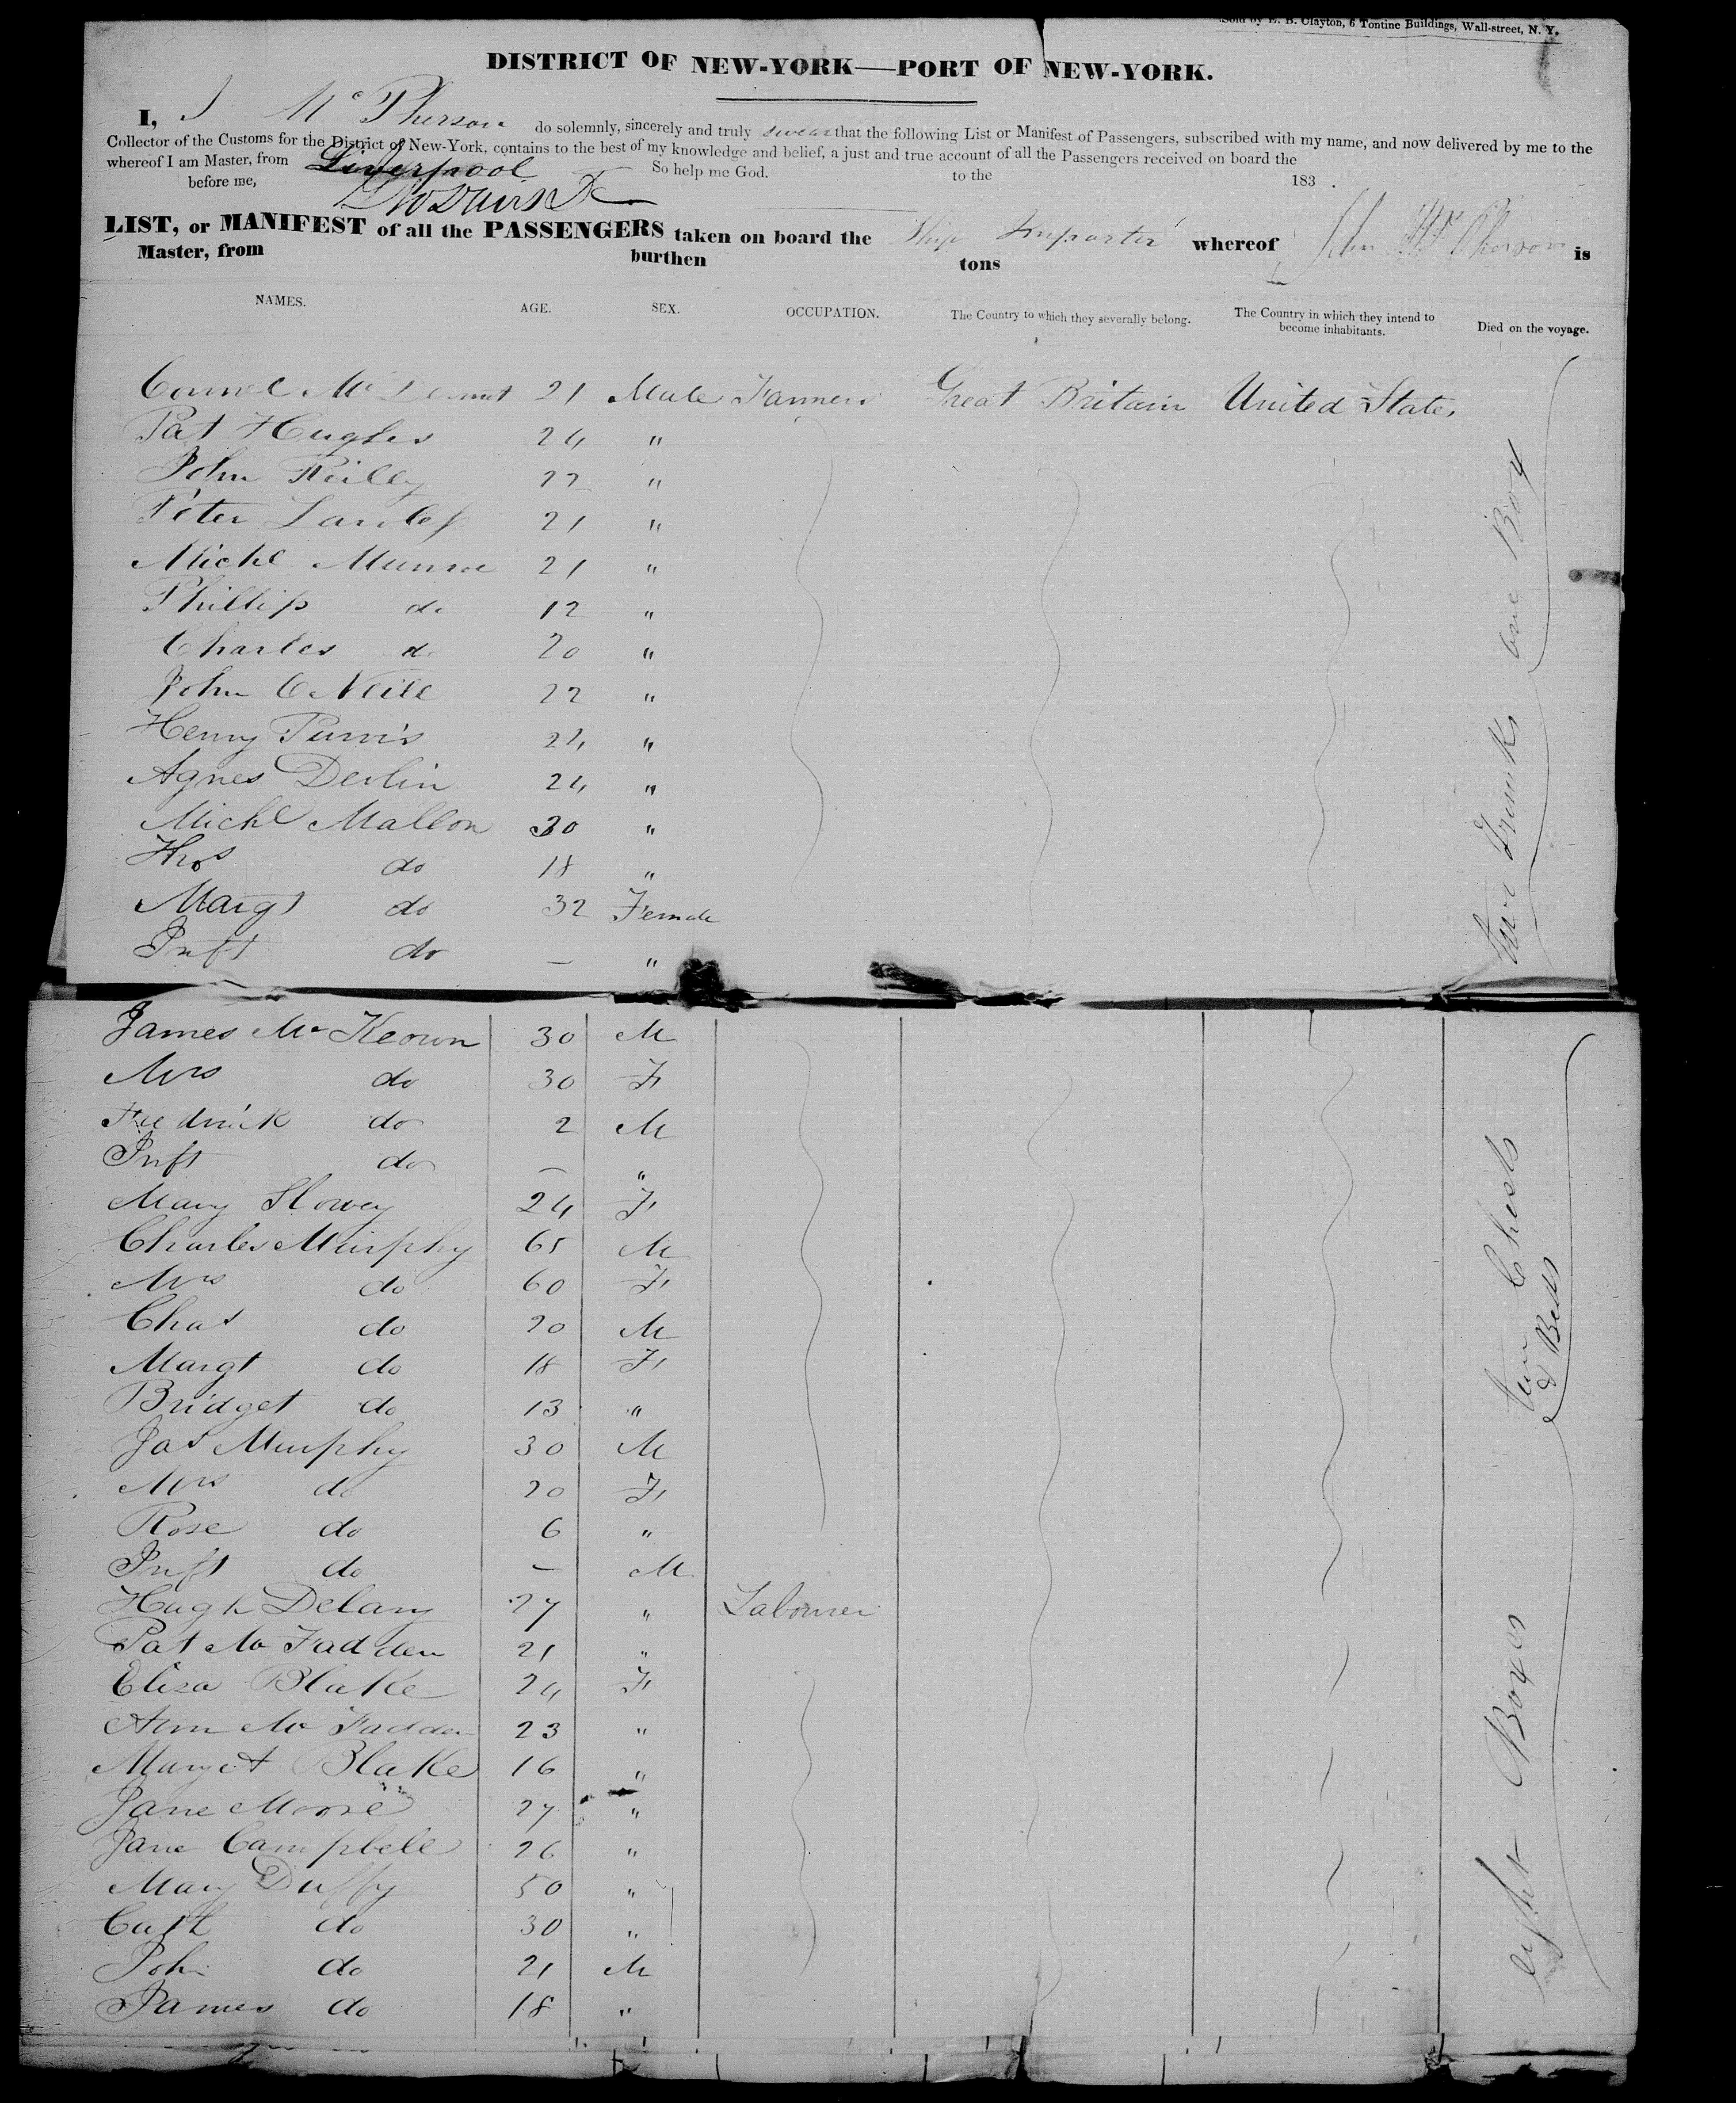 Sold by E. B. Clayton, 6 Tontine Buildings, Wall-street, N. Y.
DISTRICT OF NEW-YORK—PORT OF NEW-YORK.
I, J McPherson do solemnly, sincerely and truly swear that the following List or Manifest of Passengers, subscribed with my name, and now delivered by me to the
Collector of the Customs for the District of New-York, contains to the best of my knowledge and belief, a just and true account of all the Passengers received on board the
whereof I am Master, from Liverpool So help me God. to the 183 .
before me,
LIST, or MANIFEST of all the PASSENGERS taken on board the Ship Importer whereof John McPherson is
Master, from burthen tons
NAMES. AGE. SEX. OCCUPATION. The Country to which they severally belong. The Country in which they intend to become inhabitants. Died on the voyage.
McDermot 21 Male Farmers Great Britain United States
Pat Hughes 24 "
John Reilly 22 "
Peter 21 "
Michl Munroe 21 "
Phillip do 12 "
Charles do 20 "
John O Neill 22 "
Henry Purvis 24 "
Agnes Devlin 24 "
Michl Mallon 30 "
Thos do 18 "
Margt do 32 Female
Inft do — "
two Trunks one Box
James Mc Keown 30 M
Mrs do 30 F
Fredrick do 2 M
Inft do — "
Mary Slowey 24 F
Charles Murphy 65 M
Mrs do 60 F
Chas do 20 M
Margt do 18 F
Bridget do 13 "
Jas Murphy 30 M
Mrs do 20 F
Rose do 6 "
Inft do — M
two Chests & Beds
Hugh Delany 27 " Labourer
Pat Mc Fadden 21 "
Eliza Blake 24 F
Ann Mc Fadden 23 "
Margt Blake 16 "
Jane Moore 27 "
Jane Campbell 26 "
Mary Duffy 50 "
Cath do 30 "
John do 21 M
James do 18 "
eight Boxes